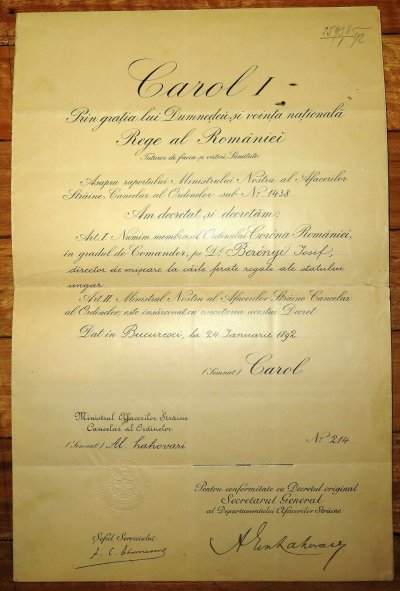 Carol I
Prin grația lui Dumnedeu și voința națională
Rege al României
Tutulor de facia și viitori, Sănătate
Asupra raportului Ministrului Nostru al Afacerilor
Străine, Cancelar al Ordinelor sub No 1438
Am decretat și decretăm:
Art. I Numim membru al Ordinului Corona României,
în gradul de Comandor, pe Dl Berényi Iosif,
director de mișcare la căile ferate regale ale statului
ungar
Art. II. Ministrul Nostru al Afacerilor Străine Cancelar
al Ordinelor, este însărcinat cu esecutarea acestui Decret
Dat în Bucuresci, la 24 Ianuarie 1892
(Semnat) Carol
Ministrul Afacerilor Străine
Cancelar al Ordinelor
(Semnat) Al. Lahovari
No 214
Pentru conformitate cu Decretul original
Secretarul General
al Departamentului Afacerilor Străine
Șeful Serviciului